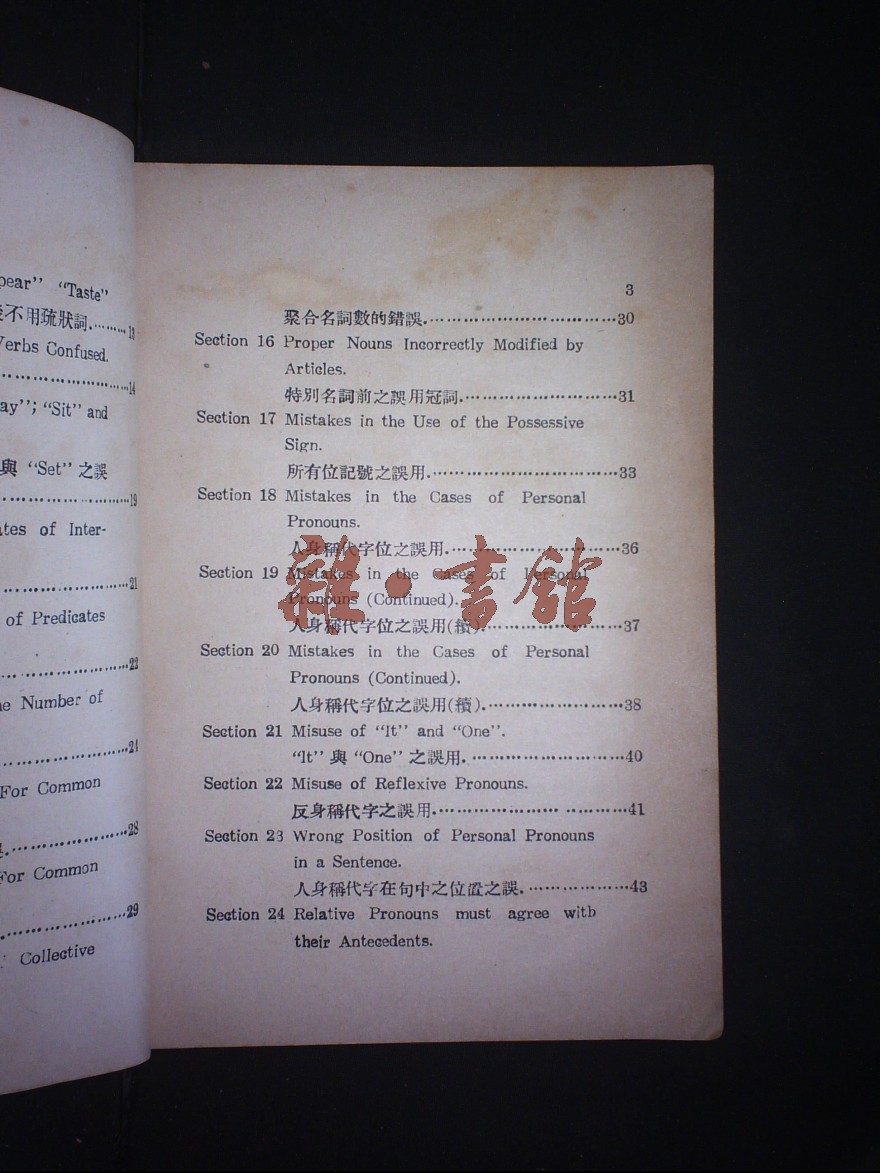 pear” “Taste”
不用疏狀詞.………13
Verbs Confused.
……………………14
ay”; “Sit” and
與 “Set” 之誤
……………………19
ates of Inter-
……………………21
of Predicates
……………………22
he Number of
……………………24
For Common
……………………28
For Common
……………………29
Collective
3
聚合名詞數的錯誤.……………………………30
Section 16 Proper Nouns Incorrectly Modified by
Articles.
特别名詞前之誤用冠詞.………………………31
Section 17 Mistakes in the Use of the Possessive
Sign.
所有位記號之誤用.……………………………33
Section 18 Mistakes in the Cases of Personal
Pronouns.
人身稱代字位之誤用.…………………………36
Section 19 Mistakes in the Cases of Personal
Pronouns (Continued).
人身稱代字位之誤用(續).……………………37
Section 20 Mistakes in the Cases of Personal
Pronouns (Continued).
人身稱代字位之誤用(續).……………………38
Section 21 Misuse of “It” and “One”.
“It” 與 “One” 之誤用.………………………40
Section 22 Misuse of Reflexive Pronouns.
反身稱代字之誤用.……………………………41
Section 23 Wrong Position of Personal Pronouns
in a Sentence.
人身稱代字在句中之位置之誤.………………43
Section 24 Relative Pronouns must agree with
their Antecedents.
雜·書館